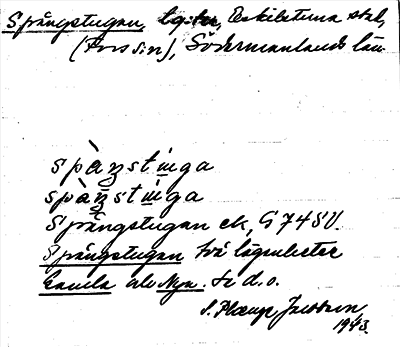 Spångstugan, lght, Eskilstuna stad,
(Fors sn), Södermanlands län
spàŋstuga
spàŋstuga
Spångstugan ek, G 74 SV.
Spångstugan två lägenheter
Gamla alt. Nya. Se d.o.
S. Plamp Jacobsen
1943.